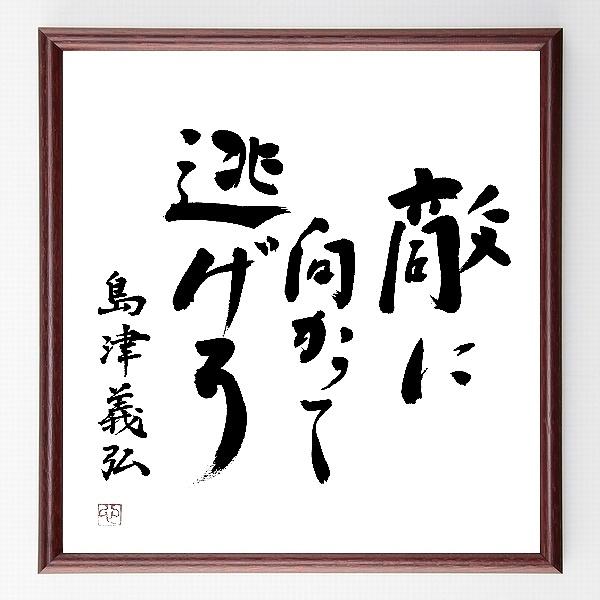 敵に
向かって
逃げろ
島津義弘